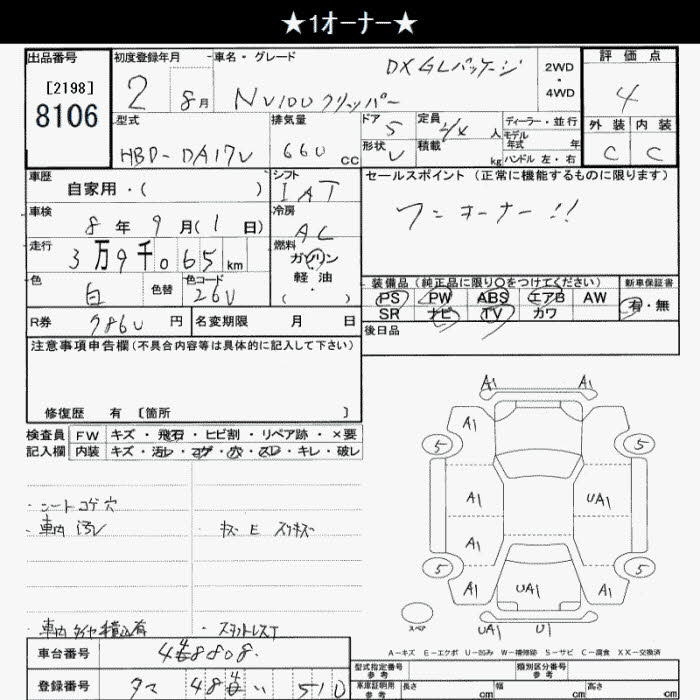 ★1オーナー★
出品番号 初度登録年月 車名・グレード 評価点
[2198]
8106
2 8月 NV100クリッパー DX GLパッケージ 2WD・4WD 4
型式 排気量 ドア 定員 ディーラー・並行 外装 内装
HBD-DA17V 660cc 5 人 モデル年式 年 C C
形状 V 積載 kg ハンドル 左・右
車歴 シフト セールスポイント (正常に機能するものに限ります)
自家用・( ) IAT ワンオーナー!!
車検 冷房
8年9月(1日) AC
走行 燃料
3万9千065km ガソリン
軽油
(・)
色 色替 色コード 装備品 (純正品に限り○をつけてください) 新車保証書
白 26U PS PW ABS エアB AW 有・無
SR ナビ TV カワ
R券 9860円 名変期限 月 日 後日品
注意事項申告欄(不具合内容等は具体的に記入して下さい)
修復歴 有 〔箇所 〕
検査員 FW キズ・飛石・ヒビ割・リペア跡・×要
記入欄 内装 キズ・汚レ・コゲ・穴・スレ・キレ・破レ
・シートコゲ穴
・車内汚レ ・キズ E スリキズ
・車内タイヤ積込有 ・スタットレスT
A1 A1
A1
5 5
A1 UA1
A1
5 5
A1 UA1 A1
スペア UA1 U1
A-キズ E-エクボ U-凹み W-補修跡 S-サビ C-腐食 XX-交換済
車台番号 型式指定番号 類別区分番号
参考 参考
登録番号 車庫証明用 長さ cm 幅 cm 高さ cm
参考